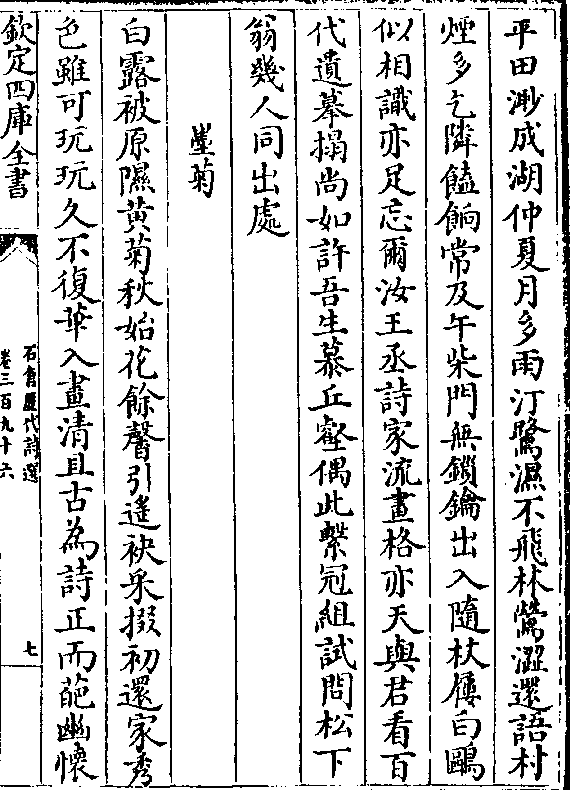 平田渺成湖仲夏月多雨汀鷺濕不飛林鶯澀還語村
煙多乞隣饁餉常及午柴門無鎖鑰出入隨杖屨白鷗
似相識亦足忘爾汝王丞詩家流畫格亦天與君看百
代遺摹搨尚如許吾生慕丘壑偶此繫冠組試問松下
翁幾人同出處
菊
白露被原隰黄菊秋始花餘馨引遙袂采掇初還家秀
色雖可玩玩久不復華入畫清且古為詩正而葩幽懷
欽定四庫全書
石倉歷代詩選
卷三百九十六
七